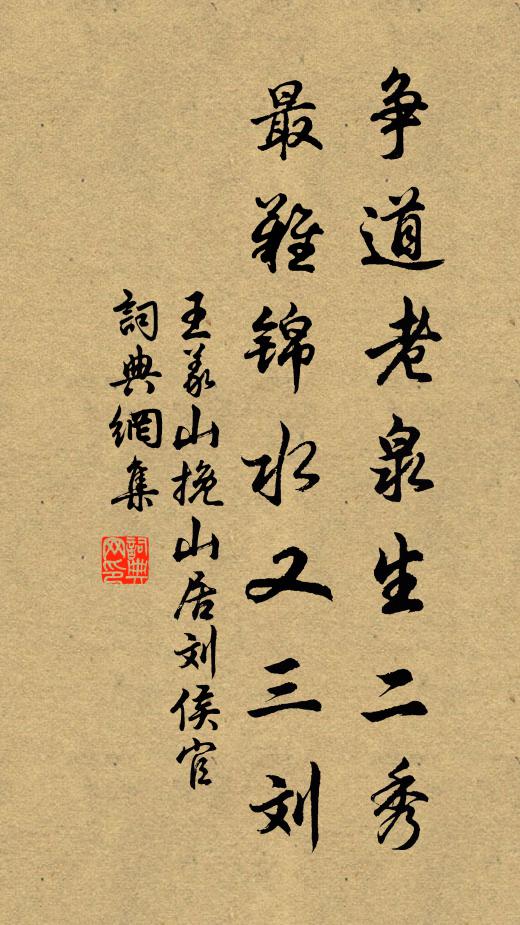 争道老泉生二秀
最难锦水又三刘
王义山挽山居刘侯官
詞典網集
詞典网印